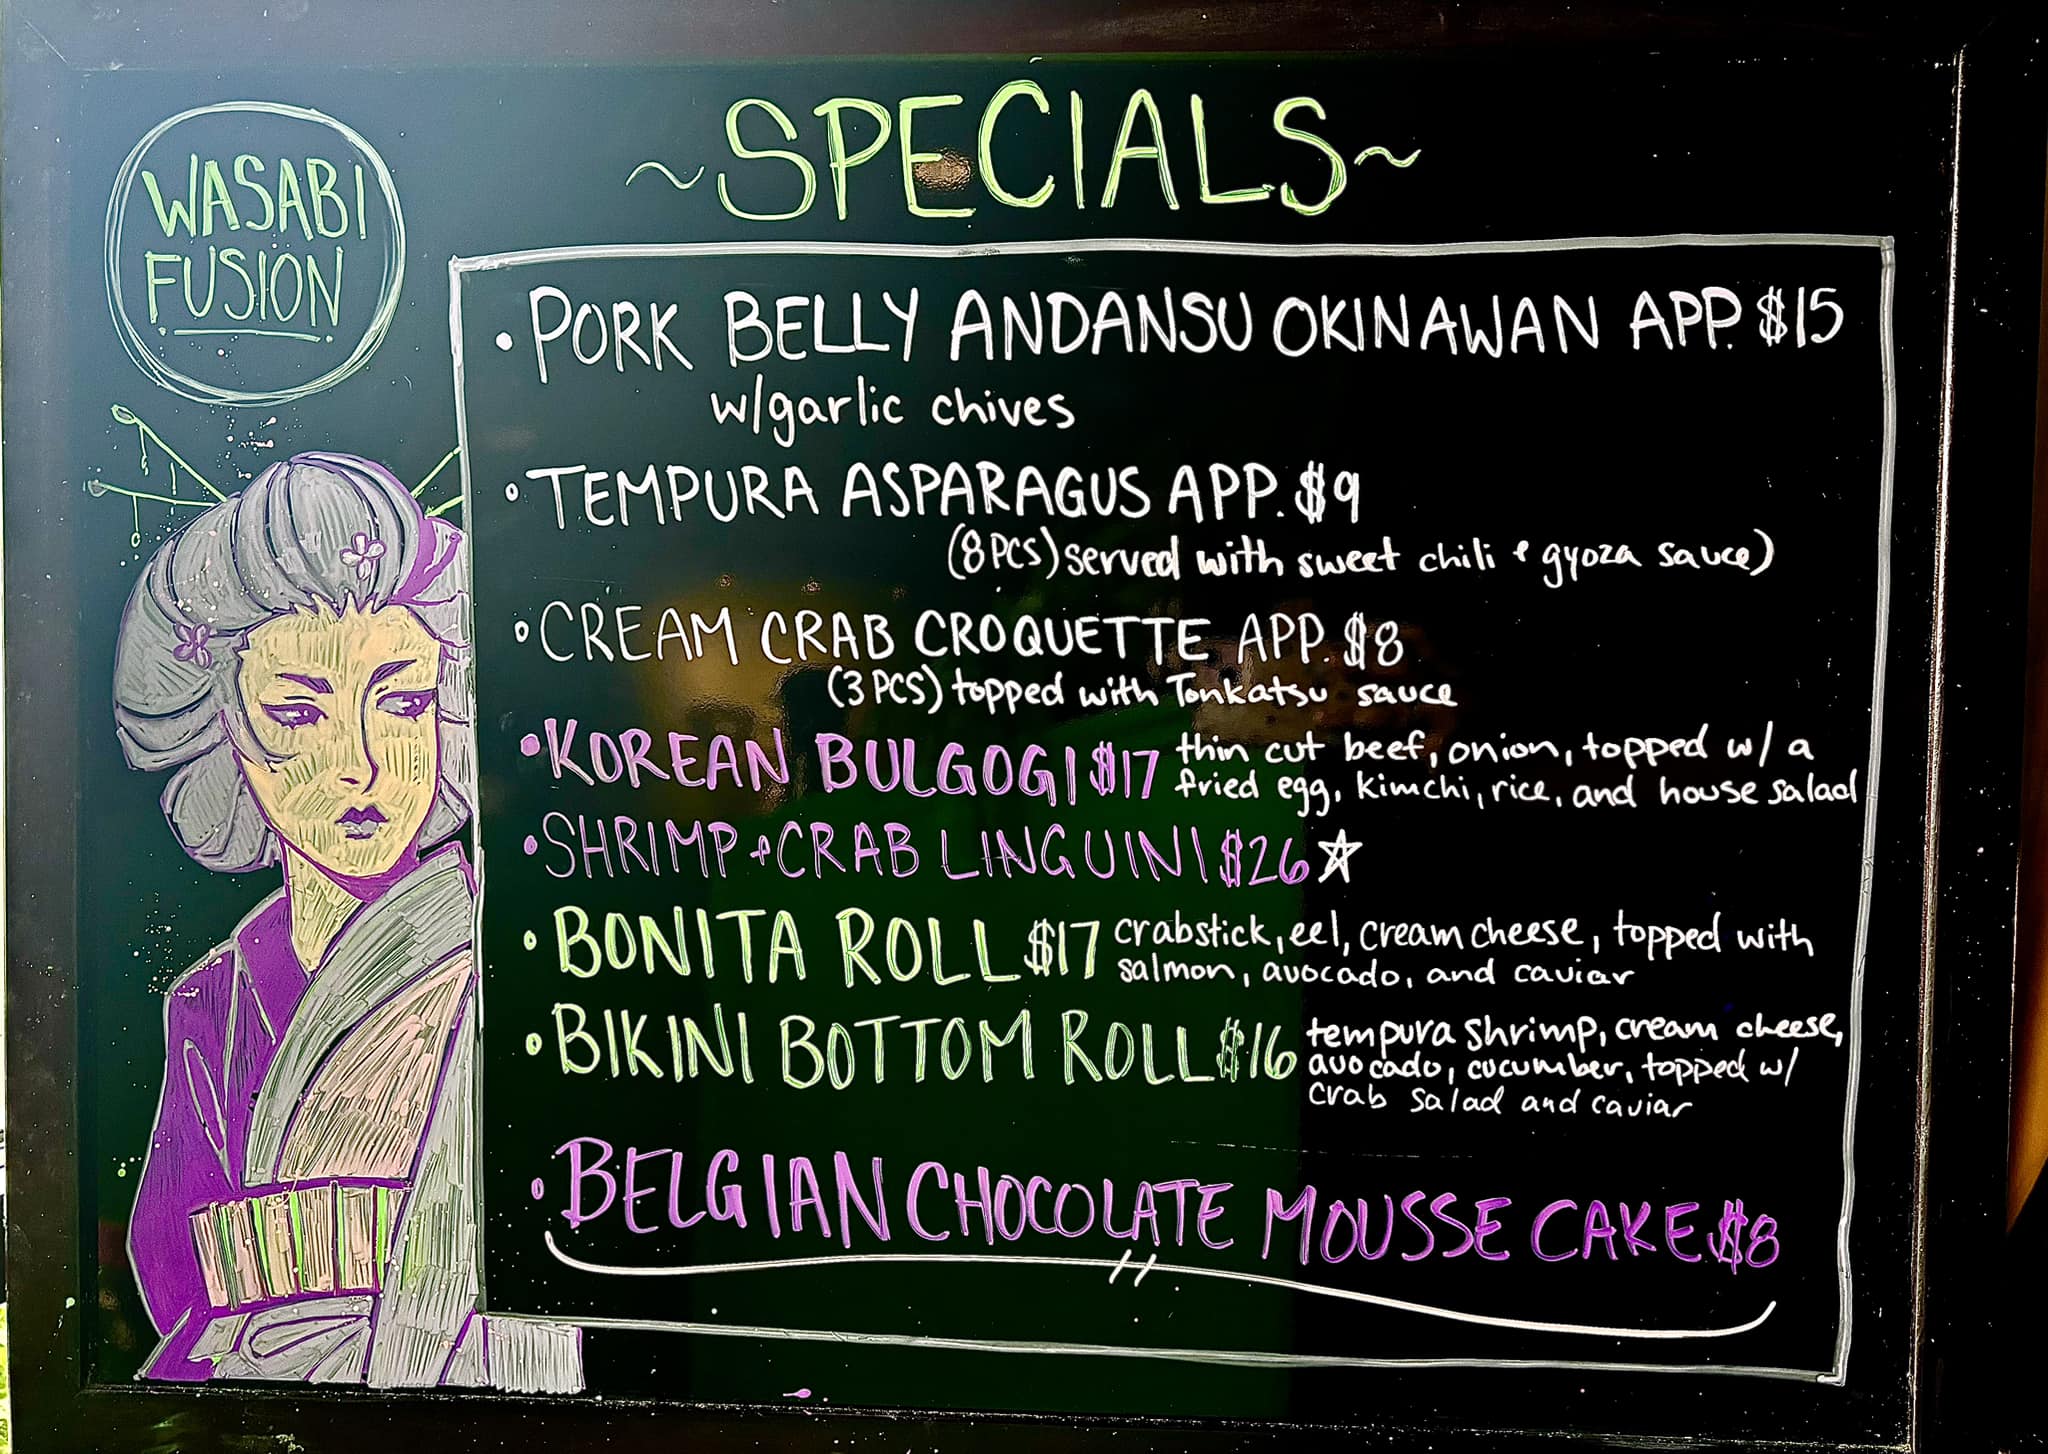 WASABI
FUSION
~SPECIALS~
• PORK BELLY ANDANSU OKINAWAN APP. $15
w/garlic chives
• TEMPURA ASPARAGUS APP. $9
(8 PCS) served with sweet chili & gyoza sauce)
• CREAM CRAB CROQUETTE APP. $8
(3 PCS) topped with Tonkatsu sauce
• KOREAN BULGOGI $17 thin cut beef, onion, topped w/ a
fried egg, kimchi, rice, and house salad
• SHRIMP & CRAB LINGUINI $26 ☆
• BONITA ROLL $17 crabstick, eel, cream cheese, topped with
salmon, avocado, and caviar
• BIKINI BOTTOM ROLL $16 tempura shrimp, cream cheese,
avocado, cucumber, topped w/
crab salad and caviar
• BELGIAN CHOCOLATE MOUSSE CAKE $8